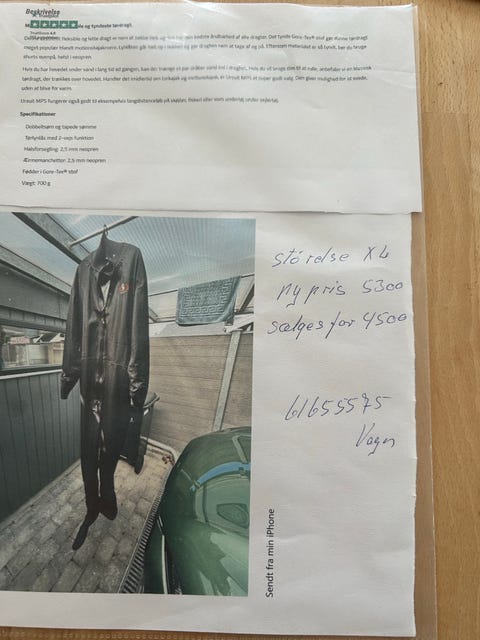 Beskrivelse
Trustpilot
TrustScore 4.6
og tyndeste tørdragt.
fleksible og lette dragt er nem at
åndbarhed af alle dragter. Det tynde Gore-Tex® stof gør denne tørdragt
meget populær blandt motionskajakroere. Lynlåsen går helt op i nakken og gør dragten nem at tage af og på. Eftersom materialet er så tyndt, bør du bruge
shorts epmpå, helst i neopren.
Hvis du har hovedet under vand i lang tid ad gangen, kan der trænge et par dråber vand ind i dragten. Hvis du vil bruge den til at rulle, anbefaler vi en klassisk
tørdragt, der trækkes over hovedet. Handler det imidlertid om turkajak og motionskajak, er Ursuit MPS et super godt valg. Den giver mulighed for at svede,
uden at blive for varm.
Ursuit MPS fungerer også godt til eksempelvis langdistanceløb på skøjter, fiskeri eller som undertøj under sejlertøj.
Specifikationer
Dobbeltsøm og tapede sømme
Tørlynlås med 2-vejs funktion
Halsforsegling: 2,5 mm neopren
Ærmemanchetter: 2,5 mm neopren
Fødder i Gore-Tex® stof
Vægt: 700 g
størelse XL
ny pris 5300
sælges for 4500
61655575
Vagn
Sendt fra min iPhone